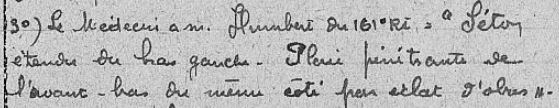 3°) Le Médecin a.m. Humbert du 161° RI = " Séton
étendu du bras gauche - Plaie pénétrante de
l'avant-bras du même côté par éclat d'obus ".